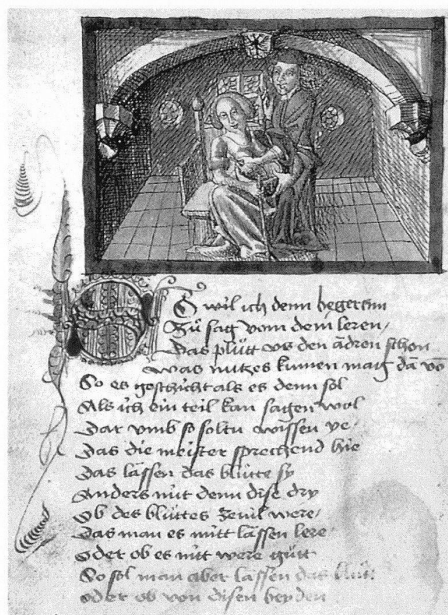 So wil ich denn begertin
Zů sagt vom dem leren
Das plůtt vs den ådron schon
Was nutzes kumen mag då võ
So es geschicht als es denn sol
Als ich ein teil kan sagen wol
Dar vmb so soltu wissen ye
Das die meister sprechend hie
Das lassen das blůtte sy
Anders nit denn dise dry
Ob des blůttes zeuil were
Das man es mitt låssen lere
Oder ob es nitt were gůtt
So sol man aber lassen das blůtt
oder ob von disen beyden